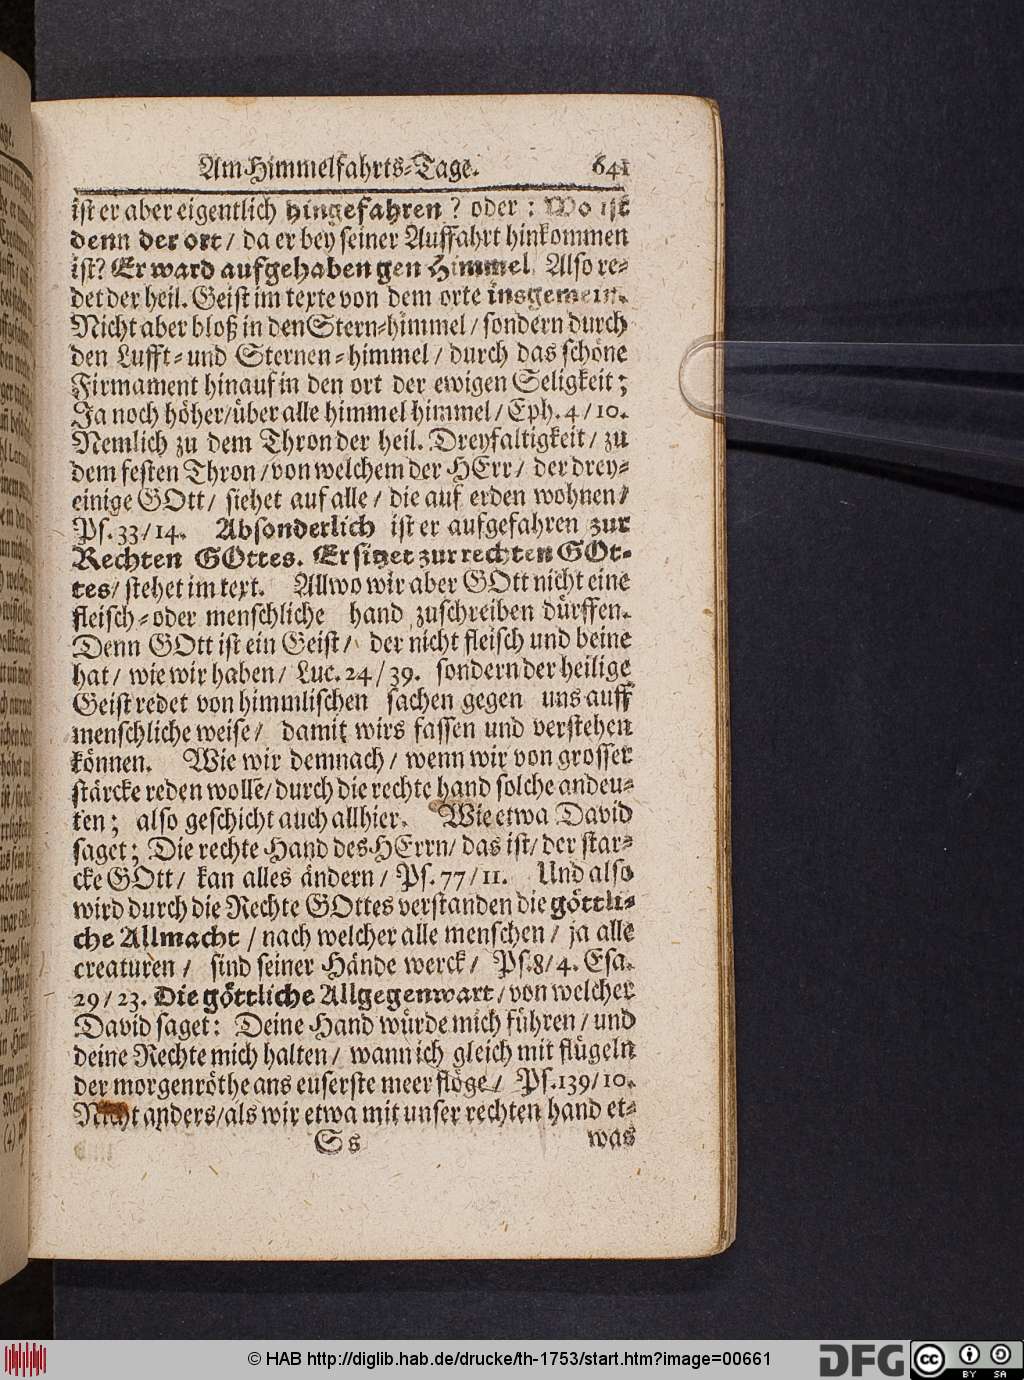 Am Himmelfahrts-Tage. 641
ist er aber eigentlich hingefahren? oder: Wo ist
denn der ort/ da er bey seiner Auffahrt hinkommen
ist? Er ward aufgehaben gen Himmel. Also re-
det der heil. Geist im texte von dem orte insgemein.
Nicht aber bloß in den Stern-himmel/ sondern durch
den Lufft- und Sternen-himmel/ durch das schöne
Firmament hinauf in den ort der ewigen Seligkeit;
Ja noch höher/ über alle himmel himmel/ Eph. 4/10.
Nemlich zu dem Thron der heil. Dreyfaltigkeit/ zu
dem festen Thron/ von welchem der HErr/ der drey-
einige GOtt/ siehet auf alle/ die auf erden wohnen/
Ps. 33/14. Absonderlich ist er aufgefahren zur
Rechten GOttes. Er sitzet zur rechten GOt-
tes/ stehet im text. Allwo wir aber GOtt nicht eine
fleisch- oder menschliche hand zuschreiben dürffen.
Denn GOtt ist ein Geist/ der nicht fleisch und beine
hat/ wie wir haben/ Luc. 24/39. sondern der heilige
Geist redet von himmlischen sachen gegen uns auff
menschliche weise/ damit wirs fassen und verstehen
können. Wie wir demnach/ wenn wir von grosser
stärcke reden wollē/ durch die rechte hand solche andeu-
ten; also geschicht auch allhier. Wie etwa David
saget; Die rechte Hand des HErrn/ das ist/ der star-
cke GOtt/ kan alles ändern/ Ps. 77/11. Und also
wird durch die Rechte GOttes verstanden die göttli-
che Allmacht/ nach welcher alle menschen/ ja alle
creaturen/ sind seiner Hände werck/ Ps. 8/4. Esa.
29/23. Die göttliche Allgegenwart/ von welcher
David saget: Deine Hand würde mich führen/ und
deine Rechte mich halten/ wann ich gleich mit flügeln
der morgenröthe ans euserste meer flöge/ Ps. 139/10.
Nicht anders/ als wir etwa mit unser rechten hand et-
Ss was
© HAB http://diglib.hab.de/drucke/th-1753/start.htm?image=00661
DFG cc BY SA